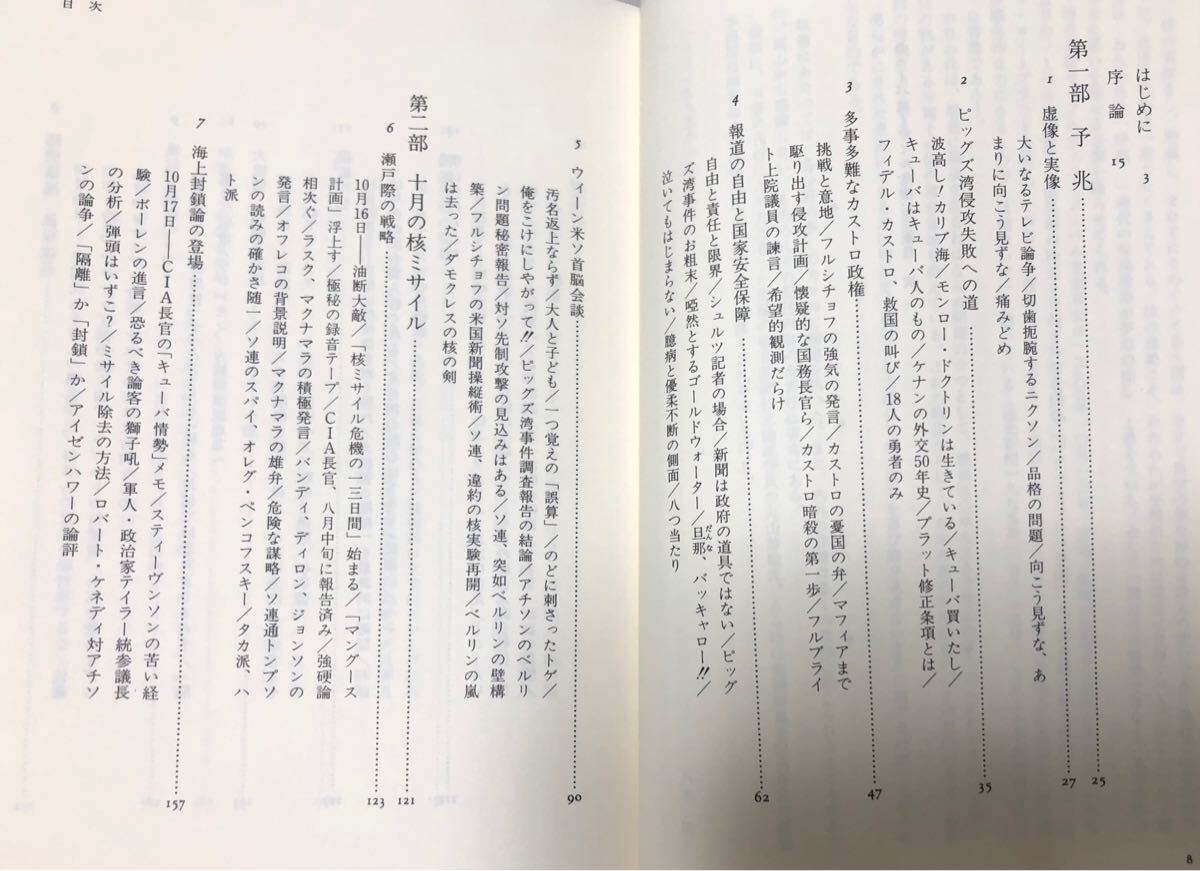 はじめに 3
序論 15
第一部 予兆 25
1 虚像と実像 27
大いなるテレビ論争/切歯扼腕するニクソン/品格の問題/向こう見ずな、あ
まりに向こう見ずな/痛みどめ
2 ピッグズ湾侵攻失敗への道 35
波高し!カリブ海/モンロー・ドクトリンは生きている/キューバ買いたし/
キューバはキューバ人のもの/ケナンの外交50年史/プラット修正条項とは/
フィデル・カストロ、救国の叫び/18人の勇者のみ
3 多事多難なカストロ政権 47
挑戦と意地/フルシチョフの強気の発言/カストロの憂国の弁/マフィアまで
駆り出す侵攻計画/懐疑的な国務長官ら/カストロ暗殺の第一歩/フルブライ
ト上院議員の諫言/希望的観測だらけ
4 報道の自由と国家安全保障 62
自由と責任と限界/シュルツ記者の場合/新聞は政府の道具ではない/ピッグ
ズ湾事件のお粗末/啞然とするゴールドウォーター/旦那、バッキャロー!!/
だんな
泣いてもはじまらない/臆病と優柔不断の側面/八つ当たり
8
目次
5 ウィーン米ソ首脳会談 90
汚名返上ならず/大人と子ども/一つ覚えの「誤算」/のどに刺さったトゲ/
俺をこけにしやがって!!/ピッグズ湾事件調査報告の結論/アチソンのベルリ
ン問題秘密報告/対ソ先制攻撃の見込みはある/ソ連、突如ベルリンの壁構
築/フルシチョフの米国新聞操縦術/ソ連、違約の核実験再開/ベルリンの嵐
は去った/ダモクレスの核の剣
第二部 十月の核ミサイル 121
6 瀬戸際の戦略 123
10月16日――油断大敵/「核ミサイル危機の一三日間」始まる/「マングース
計画」浮上す/極秘の録音テープ/CIA長官、八月中旬に報告済み/強硬論
相次ぐ/ラスク、マクナマラの積極発言/バンディ、ディロン、ジョンソンの
発言/オフレコの背景説明/マクナマラの雄弁/危険な謀略/ソ連通トンプソ
ンの読みの確かさ随一/ソ連のスパイ、オレグ・ペンコフスキー/タカ派、ハ
ト派
7 海上封鎖論の登場 157
10月17日――CIA長官の「キューバ情勢」メモ/スティーヴンソンの苦い経
験/ボーレンの進言/恐るべき論客の獅子吼/軍人・政治家テイラー統参議長
の分析/弾頭はいずこ?/ミサイル除去の方法/ロバート・ケネディ対アチソ
ンの論争/「隔離」か「封鎖」か/アイゼンハワーの論評